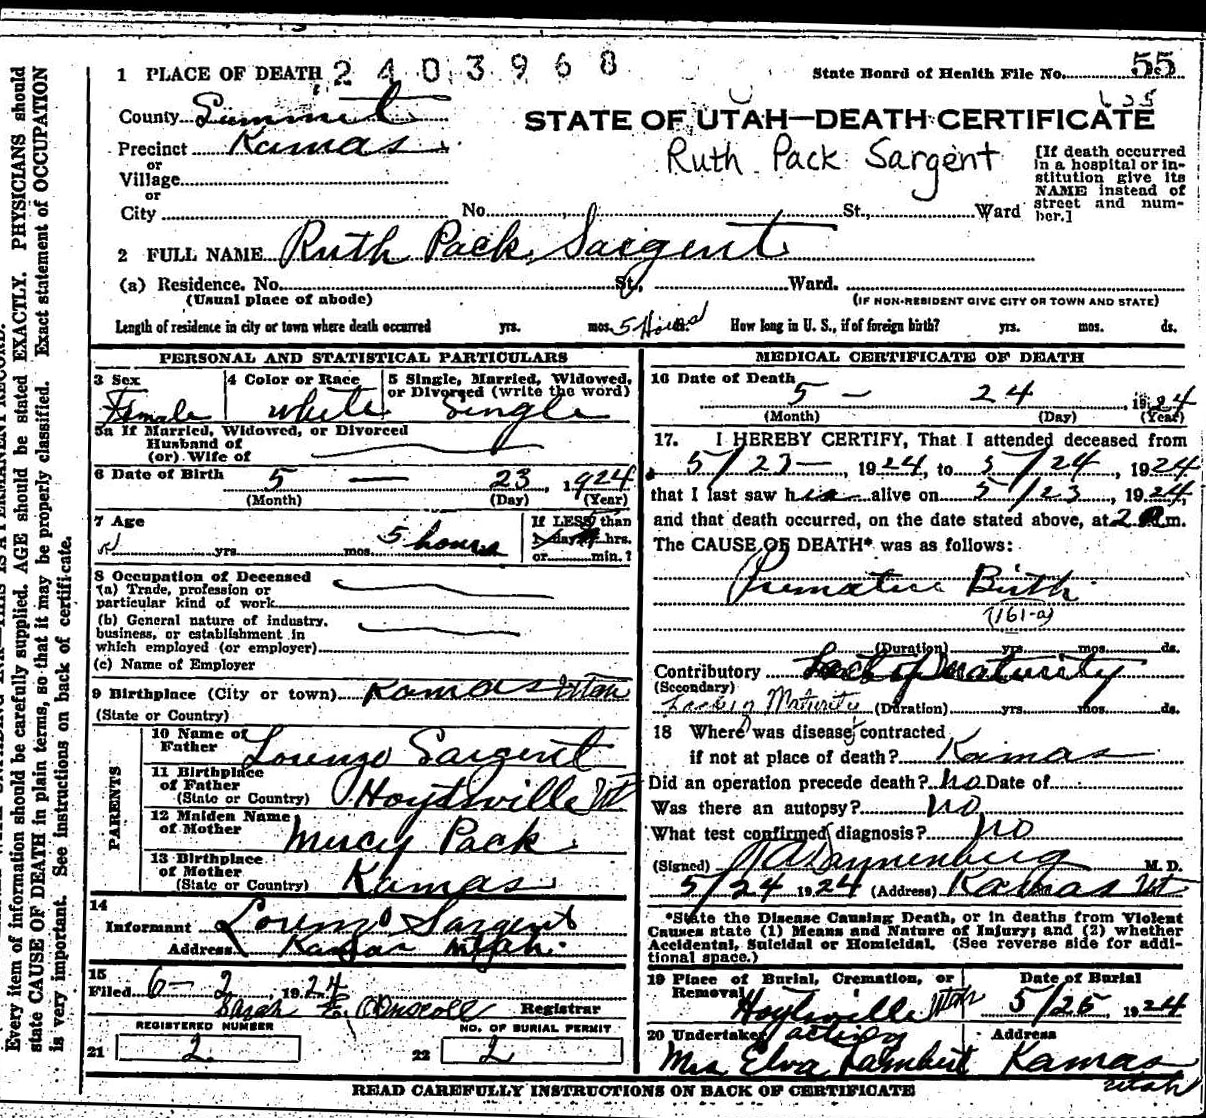 1 PLACE OF DEATH 2403968
State Board of Health File No. 55
County Summit
STATE OF UTAH—DEATH CERTIFICATE
Precinct Kamas
Ruth Pack Sargent
or
Village
or
City No. St., Ward
[If death occurred
in a hospital or in-
stitution give its
NAME instead of
street and num-
ber.]
2 FULL NAME Ruth Pack Sargent
(a) Residence. No. St., Ward.
(Usual place of abode)
(IF NON-RESIDENT GIVE CITY OR TOWN AND STATE)
Length of residence in city or town where death occurred yrs. mos. 5 Hours ds. How long in U. S., if of foreign birth? yrs. mos. ds.
PERSONAL AND STATISTICAL PARTICULARS
3 Sex
Female
4 Color or Race
White
5 Single, Married, Widowed,
or Divorced (write the word)
Single
5a If Married, Widowed, or Divorced
Husband of
(or) Wife of
6 Date of Birth 5 — 23, 1924
(Month) (Day) (Year)
7 Age
yrs. mos. 5 hours
If LESS than
1 day hrs.
or min.?
8 Occupation of Deceased
(a) Trade, profession or
particular kind of work
(b) General nature of industry,
business, or establishment in
which employed (or employer)
(c) Name of Employer
9 Birthplace (City or town) Kamas Utah
(State or Country)
PARENTS
10 Name of
Father Lorenzo Sargent
11 Birthplace
of Father
(State or Country) Hoytsville Ut
12 Maiden Name
of Mother Mercy Pack
13 Birthplace
of Mother
(State or Country) Kamas
14
Informant Lorenzo Sargent
Address Kamas Utah.
15
Filed 6 - 2, 1924
Sarah E. Registrar
REGISTERED NUMBER
21 2
NO. OF BURIAL PERMIT
22 2
MEDICAL CERTIFICATE OF DEATH
16 Date of Death
5 — 24, 1924
(Month) (Day) (Year)
17. I HEREBY CERTIFY, That I attended deceased from
5/23—, 1924, to 5/24, 1924
that I last saw h alive on 5/23, 1924,
and that death occurred, on the date stated above, at 2 m.
The CAUSE OF DEATH* was as follows:
Premature Birth
(161-a)
(Duration) yrs. mos. ds.
Contributory Lack of Maturity
(Secondary)
Lack of Maturity (Duration) yrs. mos. ds.
18 Where was disease contracted
if not at place of death? Kamas
Did an operation precede death? no Date of
Was there an autopsy? no
What test confirmed diagnosis? no
(Signed) M. D.
5/24 1924 (Address) Kamas Ut
*State the Disease Causing Death, or in deaths from Violent
Causes state (1) Means and Nature of Injury; and (2) whether
Accidental, Suicidal or Homicidal. (See reverse side for addi-
tional space.)
19 Place of Burial, Cremation, or
Removal Hoytsville Utah
Date of Burial
5/25, 1924
20 Undertaker acting
Mrs Elva Lambert
Address
Kamas
Utah
READ CAREFULLY INSTRUCTIONS ON BACK OF CERTIFICATE
Every item of information should be carefully supplied. AGE should be stated EXACTLY. PHYSICIANS should
state CAUSE OF DEATH in plain terms, so that it may be properly classified. Exact statement of OCCUPATION
is very important. See instructions on back of certificate.